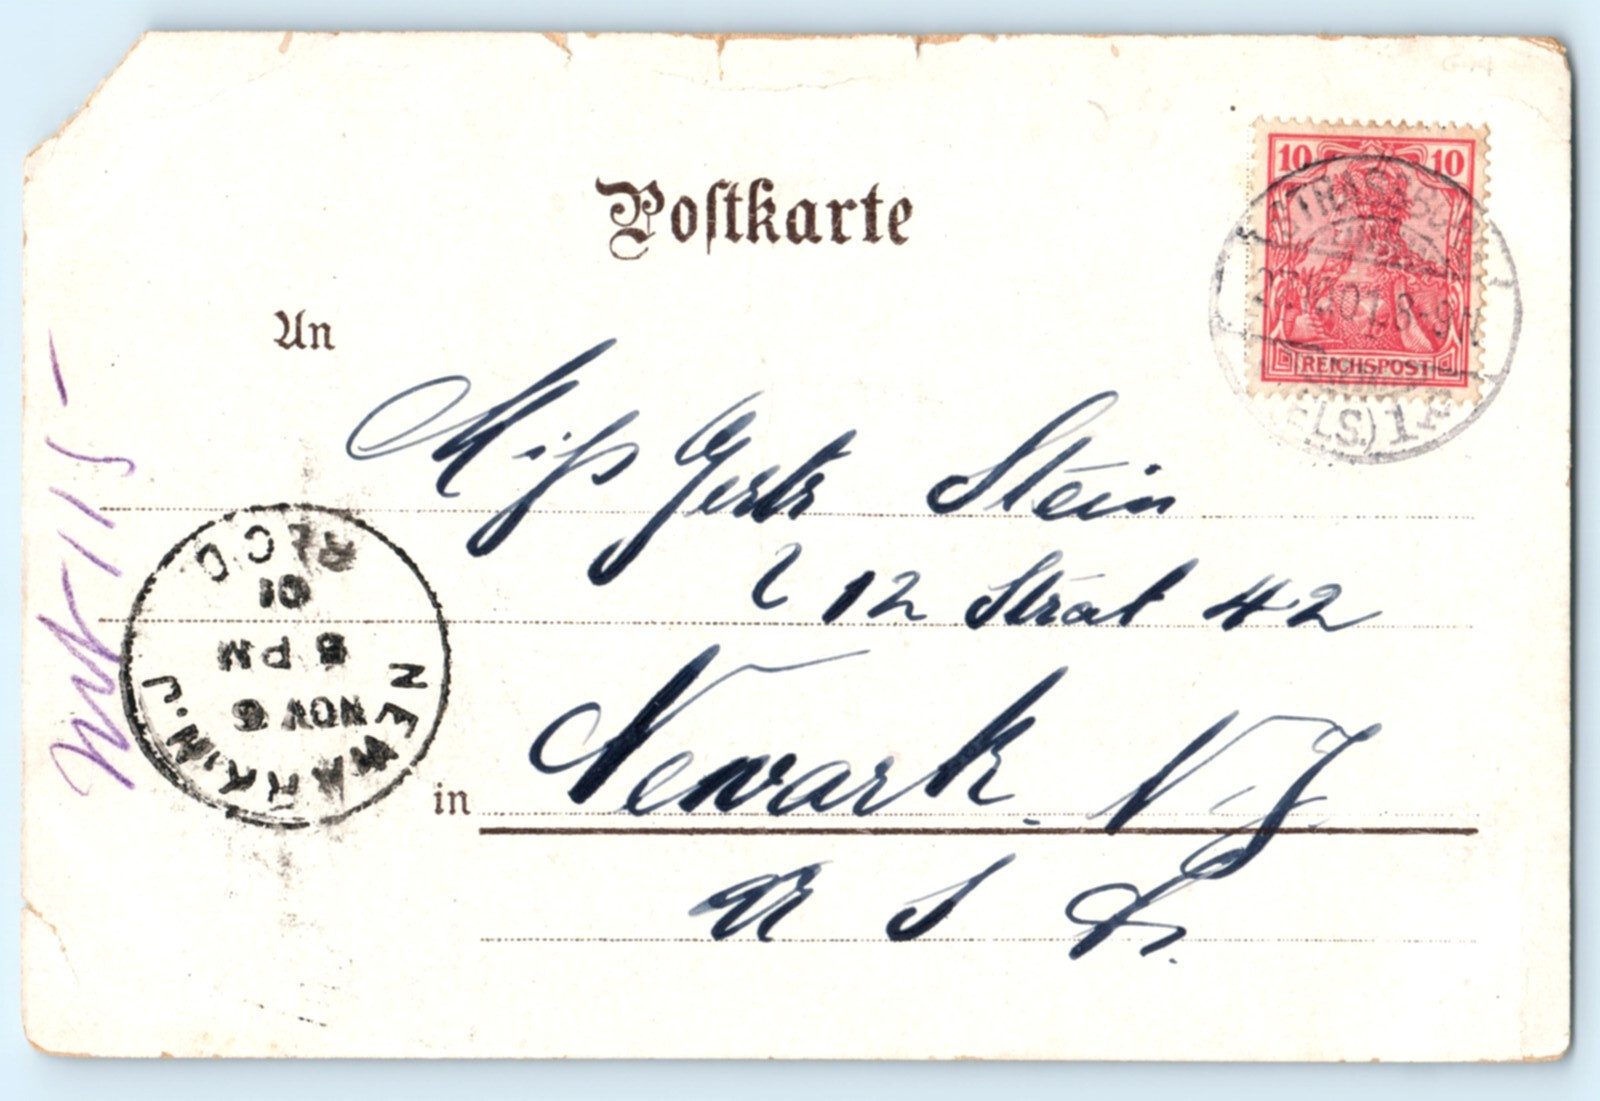 Postkarte
10 10
STRASSBURG
01 8-9
REICHSPOST
(ELS.) 1
An
Miss Gertr Stein
212 Strat 42
in Newark N J
U S A.
REC'D
01
8 PM
NOV 6
NEWARK N.J.